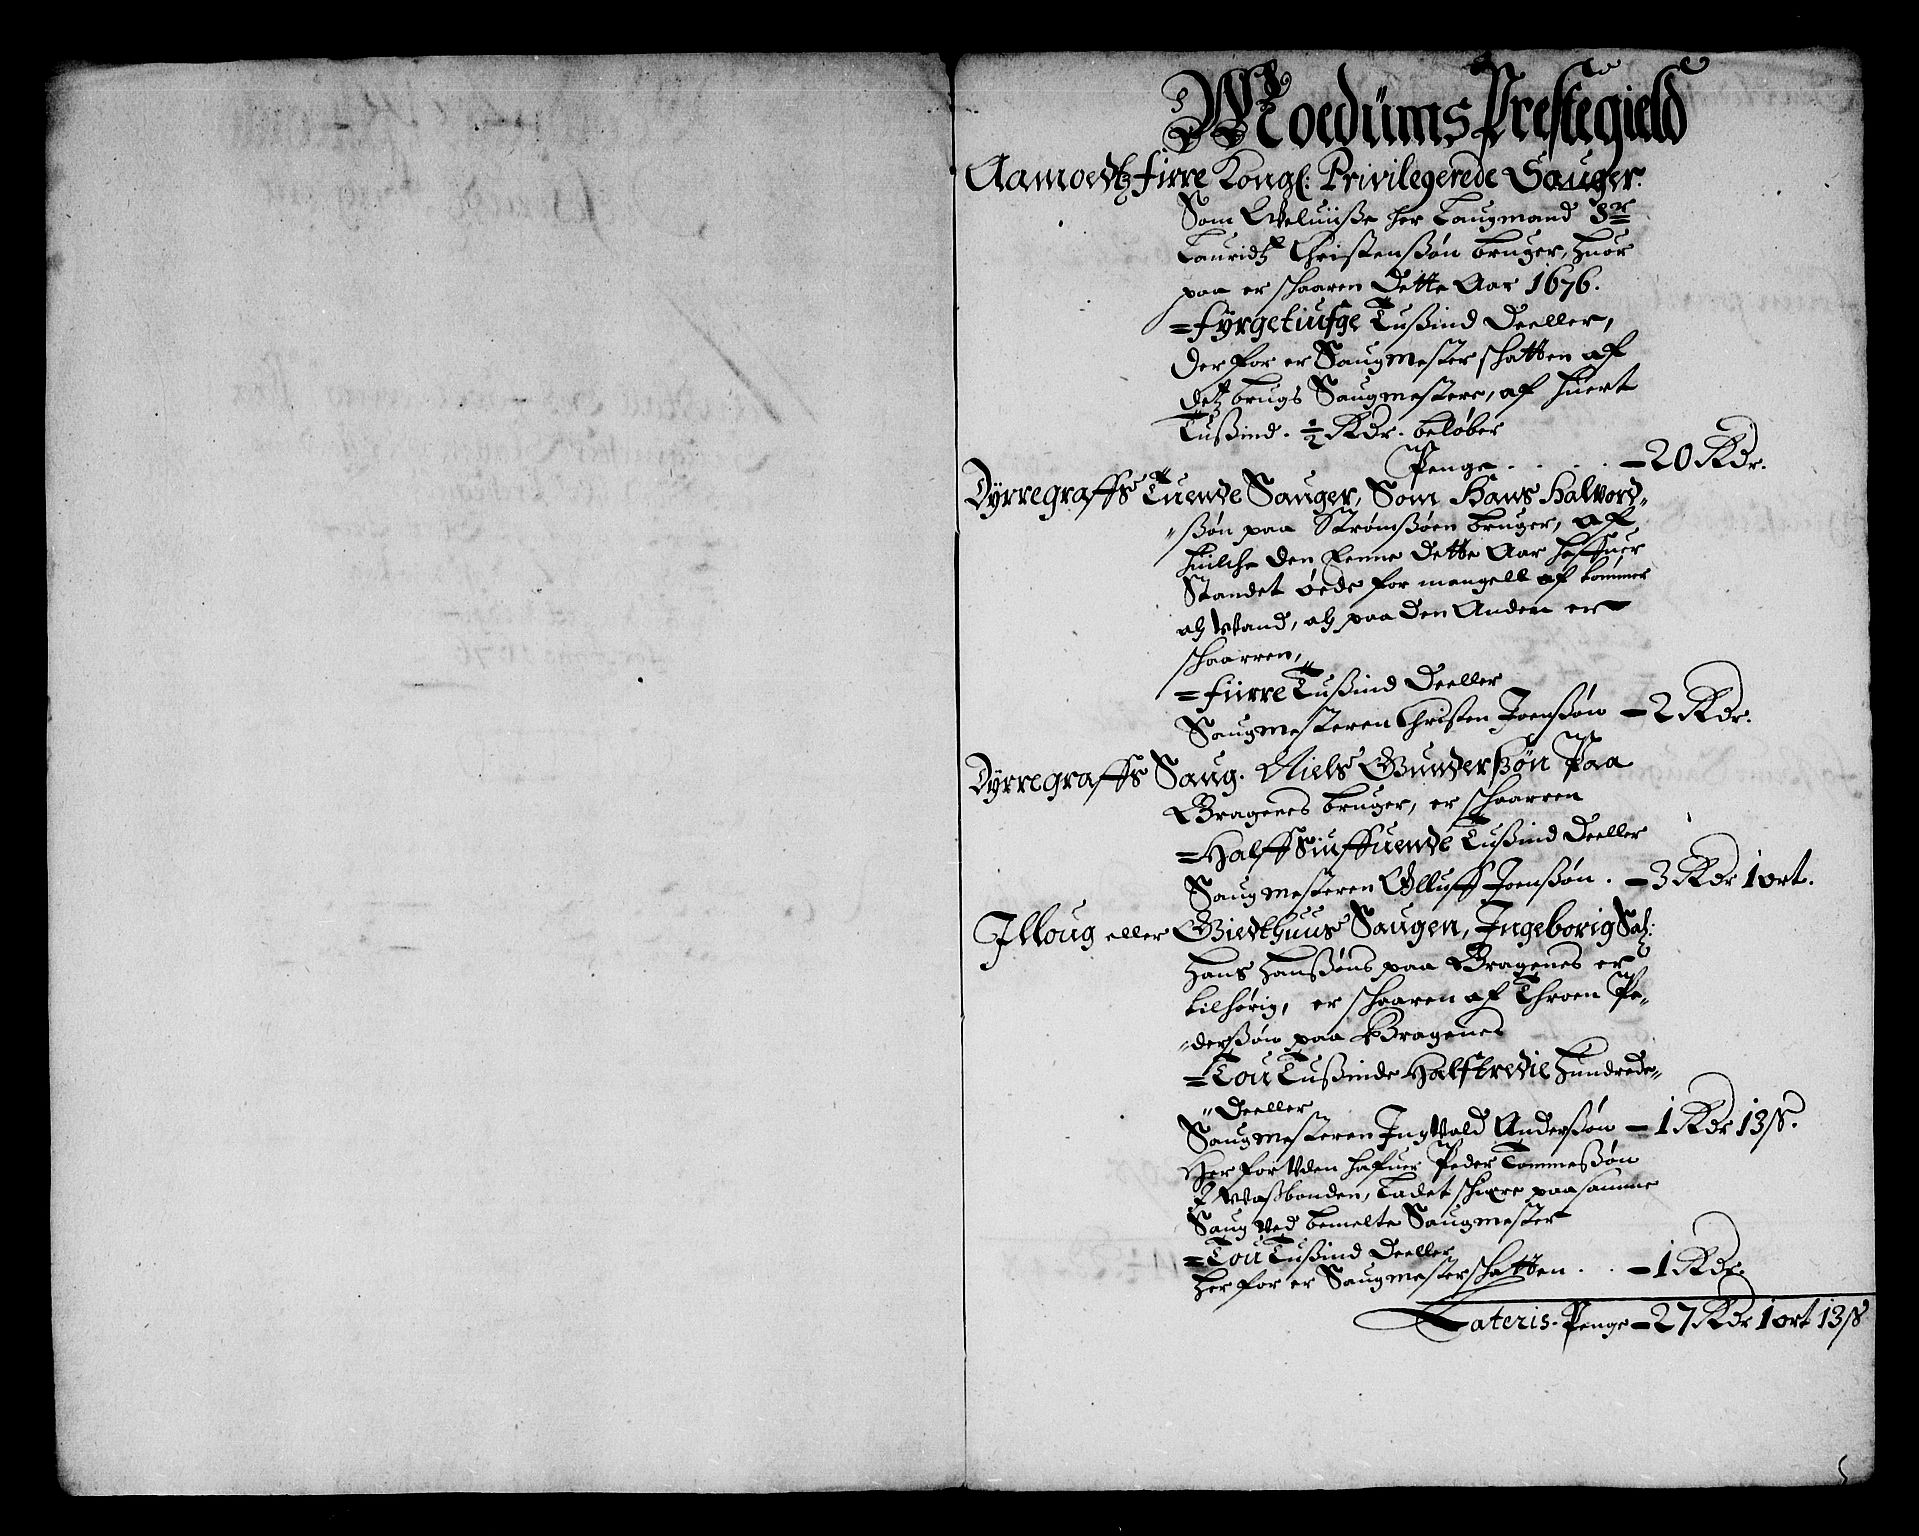 Moedums Prestegield
Aamoedtz firre Kongl: Privilegerede Sauger.
Som Welwiisse her Laugmand Sr
Lauridtz Christenssøn bruger, huor
paa er schaaren dette Aar 1676.
= fyrgetiufge Tussind Deeller,
der for er Saugmester schatten af
detz brugs Saugmestere, af huert
Tussind. ½ Rdr. beløber
Penge . . . . – 20 Rdr.
Dyrregraffs Tuende Sauger, Som Hans Halvord„
„ssøn paa Strømssøen bruger, af
huilche den Eenne dette Aar haffuer
Standet øede for mangell af tømmer
och Vand, och paa den Anden er
schaarren,
= fiirre Tussind Deeller
Saugmesteren Christen Joenssøn – 2 Rdr.
Dyrregraffs Saug. Niels Gunderssøn Paa
Bragenes bruger, er schaarren
= Halff Siuffuende Tussind Deeller
Saugmesteren Olluff Joenssøn . – 3 Rdr 1 ort.
Jlloug eller Giedthuus Saugen, Jngeborig Sal:
Hans Hanssøns paa Bragenes er
tilhørig, er schaaren af Throen Pe„
„derssøn paa Bragenes
= Tou Tussinde Halftredie Hundrede„
„Deeller
Saugmesteren Jngvald Anderssøn – 1 Rdr 13 s.
Her for uden hafuer Peder Tommessøn
J Wassbonden, Ladet schiere paa samme
Saug ved bemelte Saugmester
= Tou Tussind Deeller
Her for er Saugmesterschatten . . – 1 Rdr.
Lateris. Penge – 27 Rdr 1 ort 13 s